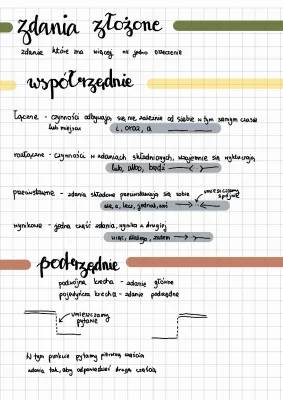 zdania złożone
zdanie które ma więcej niż jedno orzeczenie
współrzędnie
łączne - czynności odbywają się nie zależnie od siebie w tym samym czasie
lub miejscu
i, oraz, a
rozłączne - czynności w zdaniach składowych, wzajemnie się wykluczają
lub, albo, bądź
przeciwstawne - zdania składowe przeciwstawiają się sobie
umieszczamy
spójnik
ale, a, lecz, jednak, ani
wynikowe - jedna część zdania, wynika z drugiej
więc, dlatego, zatem
podrzędnie
podwójna kreska - zdanie główne
pojedyncza kreska - zdanie podrzędne
umieszczamy
pytanie
W tym punkcie pytamy pierwszą częścią
zdania tak, aby odpowiedzieć drugą częścią